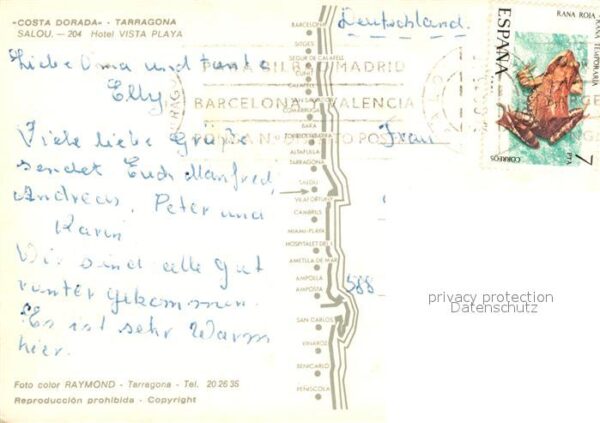 «COSTA DORADA» - TARRAGONA
SALOU. — 204 Hotel VISTA PLAYA
Liebe Oma und tante
Elly
Viele liebe Grüße
sendet Euch Manfred,
Andreas, Peter und
Karin
Wir sind alle gut
runter gekommen.
Es ist sehr Warm
hier.
Foto color RAYMOND - Tarragona - Tel. 20 26 35
Reproducción prohibida - Copyright
BARCELONA
SITGES
SEGUR DE CALAFELL
CALAFELL
CUNIT
TORREDEMBARRA
ALTAFULLA
TARRAGONA
SALOU
VILAFORTUNY
CAMBRILS
MIAMI-PLAYA
HOSPITALET DE I.
AMETLLA DE MAR
AMPOLLA
AMPOSTA
SAN CARLOS
VINAROZ
BENICARLO
PEÑISCOLA
Deutschland.
Frau
588
MADRID
BARCELONA VALENCIA
ESPAÑA
RANA ROJA
RANA TEMPORARIA
CORREOS
7 PTA
privacy protection
Datenschutz